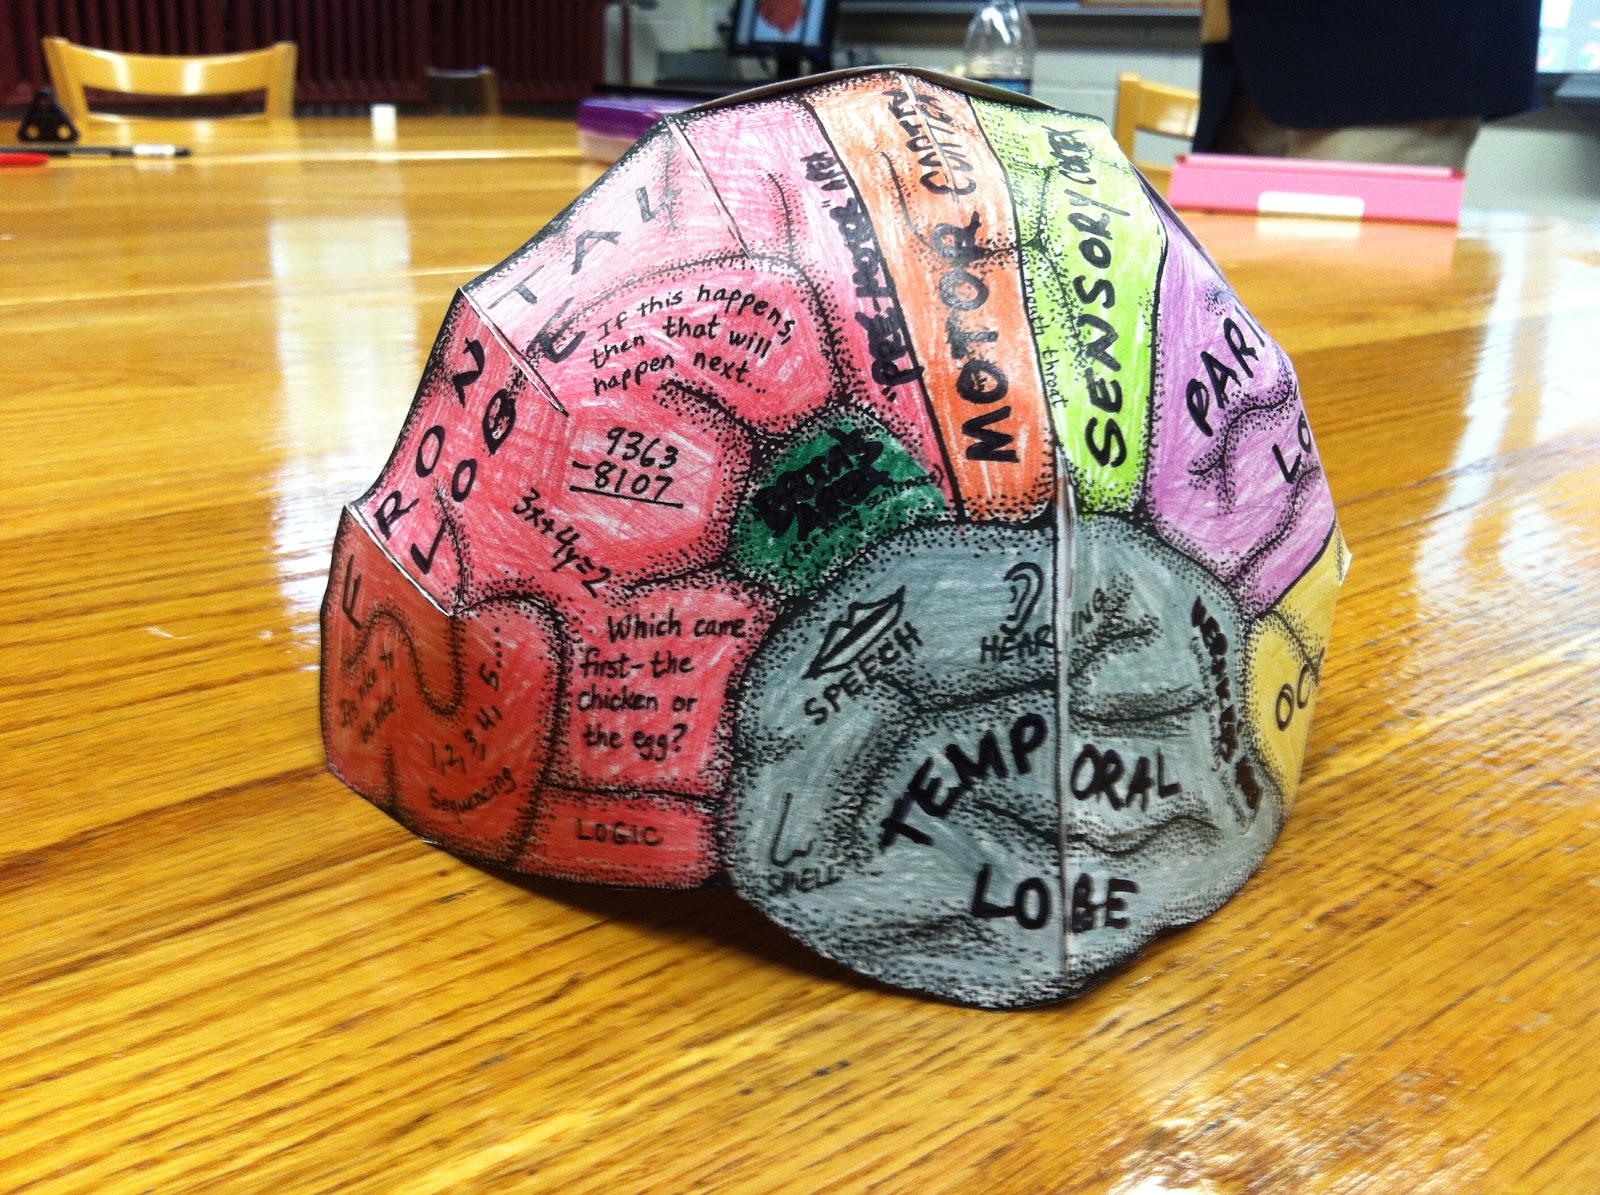 FRONTAL
LOBE
If this happens,
then that will
happen next...
9363
-8107
3x+4y=2
It's nice to
be nice!
1,2,3,4,5....
Sequencing
Which came
first-the
chicken or
the egg?
LOGIC
"PRE-MOTOR" AREA
BROCA'S
AREA
MOTOR CORTEX
mouth
throat
SENSORY CORTEX
PARI
LO
SPEECH
HEARING
SMELL
TEMPORAL
LOBE
OCC